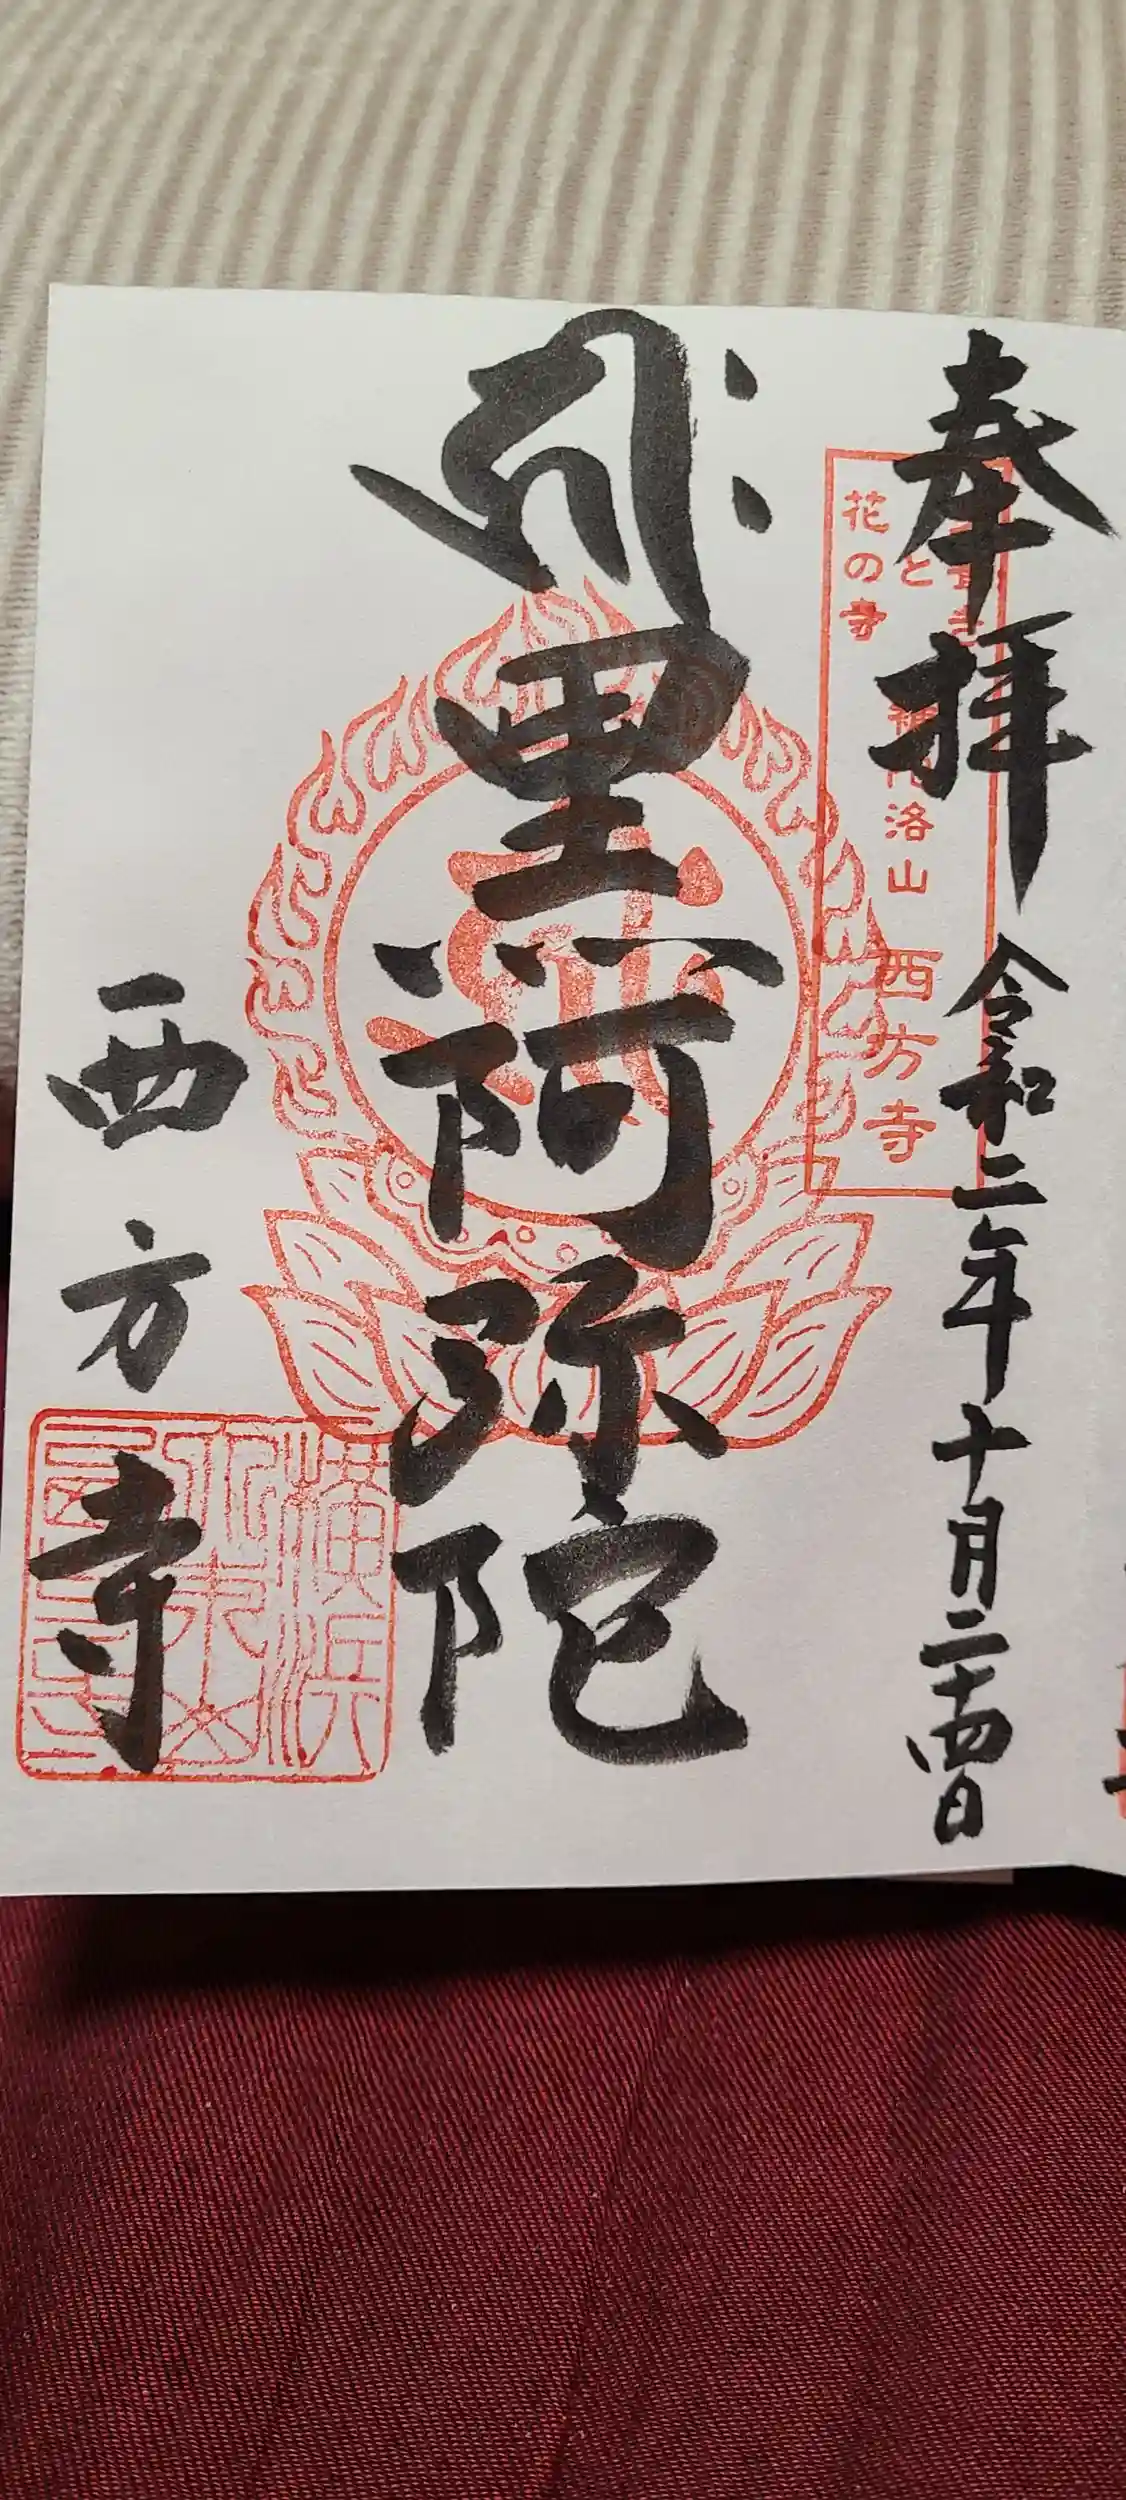 奉拝
令和二年十月二十四日
と
花の寺
補陀洛山
西方寺
𑖮𑖿𑖨𑖱𑖾
黒阿弥陀
西方寺
横浜